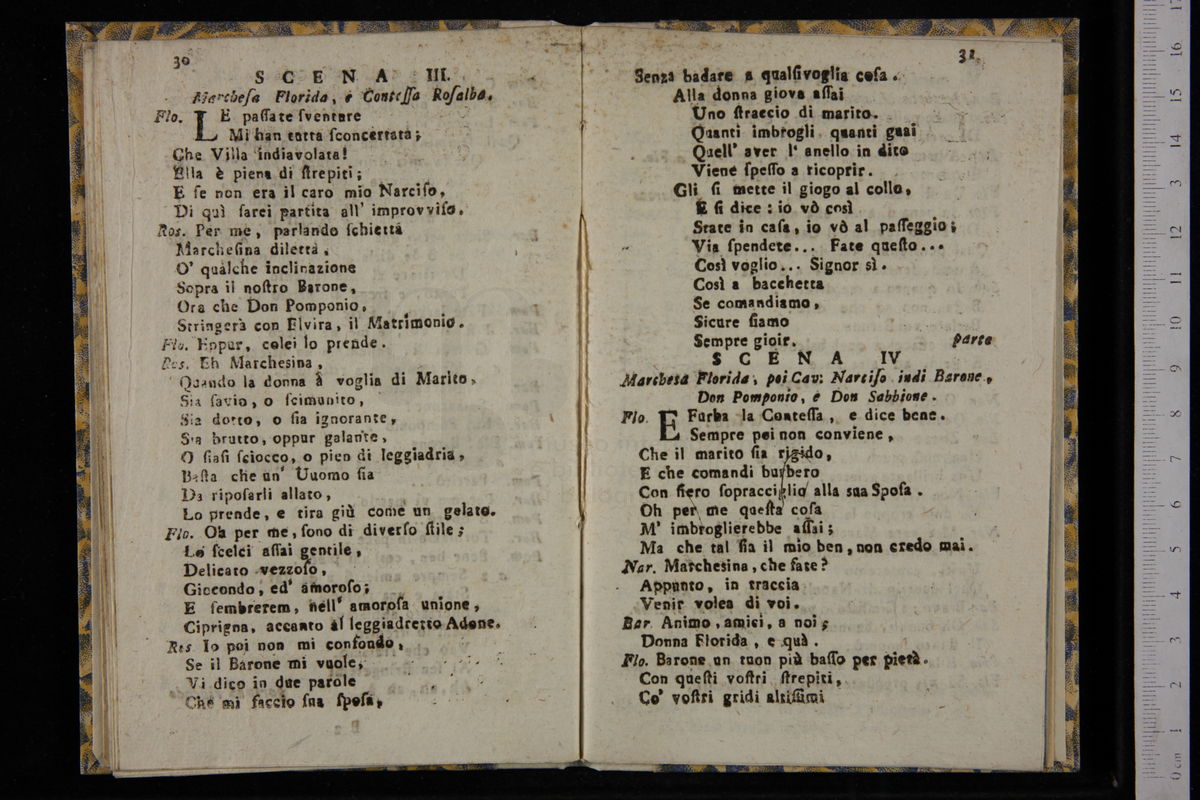 30
SCENA III.
Marchesa Florida, e Contessa Rosalba.
Flo. LE passate sventure
Mi han tutta sconcertata;
Che Villa indiavolata!
Ella è piena di strepiti;
E se non era il caro mio Narciso,
Di quì sarei partita all' improvviso.
Ros. Per me, parlando schietta
Marchesina diletta,
O' qualche inclinazione
Sopra il nostro Barone,
Ora che Don Pomponio,
Stringerà con Elvira, il Matrimonio.
Flo. Eppur, colei lo prende.
Ros. Eh Marchesina,
Quando la donna à voglia di Marito,
Sia savio, o scimunito,
Sia dotto, o sia ignorante,
Sia brutto, oppur galante,
O siasi sciocco, o pien di leggiadria,
Basta che un' Uuomo sia
Da riposarli allato,
Lo prende, e tira giù come un gelato.
Flo. Oh per me, sono di diverso stile;
Lo scelci assai gentile,
Delicato vezzoso,
Gioccondo, ed' amoroso;
E sembrerem, nell' amorosa unione,
Ciprigna, accanto al leggiadretto Adone.
Ros Io poi non mi confondo,
Se il Barone mi vuole,
Vi dico in due parole
Che mi faccio sua sposa,
31
Senza badare a qualsivoglia cosa.
Alla donna giova assai
Uno straccio di marito.
Quanti imbrogli quanti guai
Quell' aver l' anello in dito
Viene spesso a ricoprir.
Gli si mette il giogo al collo,
E si dice: io vò così
State in casa, io vò al passeggio;
Via spendete... Fate questo...
Così voglio... Signor sì.
Così a bacchetta
Se comandiamo,
Sicure siamo
Sempre gioir. parte
SCENA IV
Marchesa Florida, poi Cav: Narciso indi Barone,
Don Pomponio, e Don Sabbione.
Flo. E Furba la Contessa, e dice bene.
Sempre poi non conviene,
Che il marito sia rigido,
E che comandi burbero
Con fiero sopracciglio alla sua Sposa.
Oh per me questa cosa
M' imbroglierebbe assai;
Ma che tal sia il mio ben, non credo mai.
Nar. Marchesina, che fate?
Appunto, in traccia
Venir volea di voi.
Bar. Animo, amici, a noi;
Donna Florida, e quà.
Flo. Barone un tuon più basso per pietà.
Con questi vostri strepiti,
Co' vostri gridi altissimi